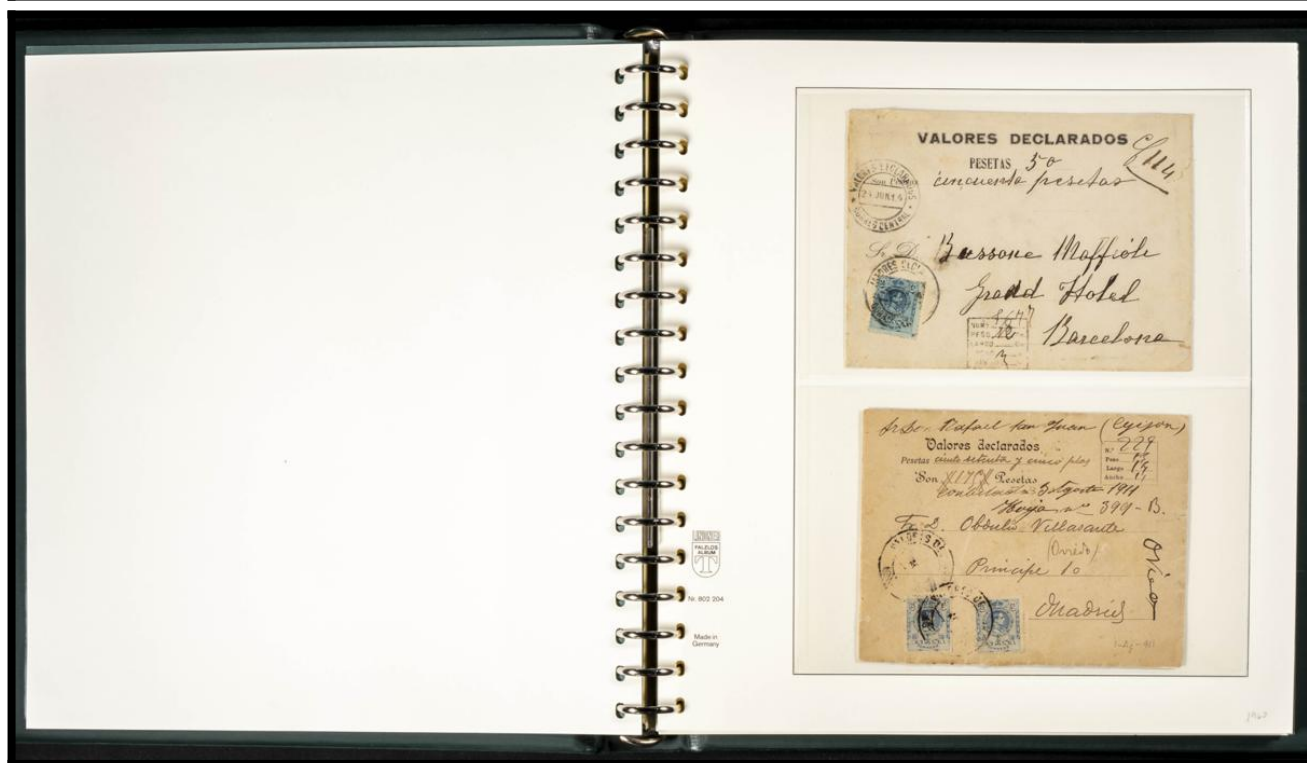 VALORES DECLARADOS
PESETAS 50
cincuenta pesetas
VALORES DECLARADOS
24 JUN 1
CENTRAL
Sr. D. Bussone Maffiole
Grand Hotel
Barcelona
Sr Don Rafael San Juan (Gijon)
Valores declarados
Pesetas ciento setenta y cinco ptas
Son 175 Pesetas
Nº 229
Peso
Largo 15
Ancho 11
3 Agosto 1911
Hoja nº 399-B.
Sr D. Obdulio Villasante
(Oviedo)
Principe 10
Madrid
LINDNER
FALZLOS
ALBUM
T
Nr. 802 204
Made in
Germany